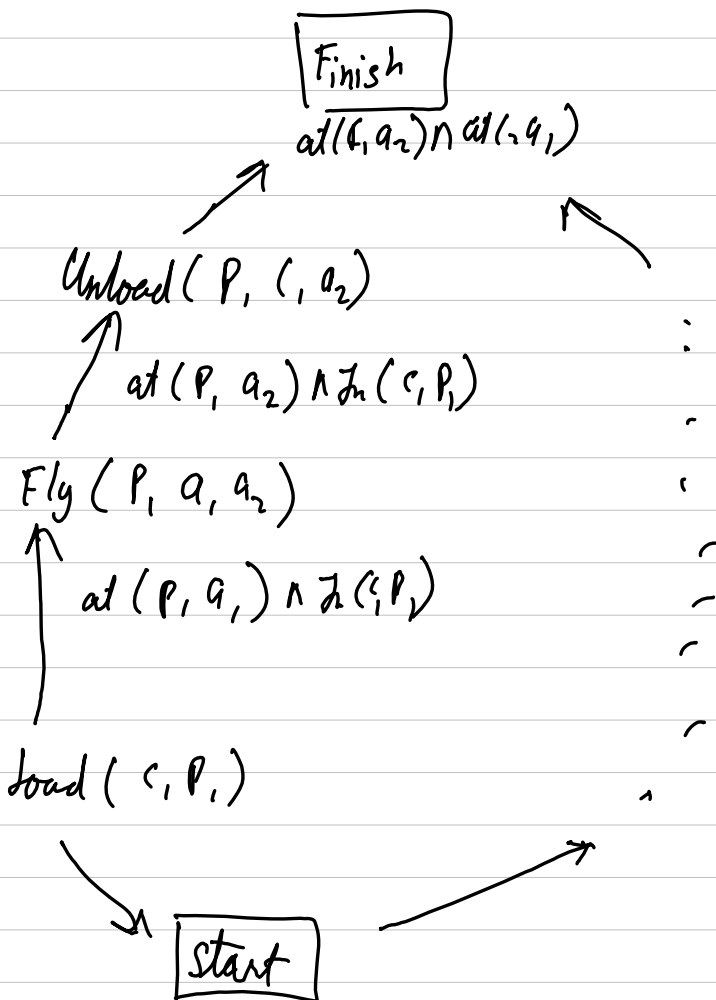 Finish
at(C, a₂) ∩ at(₂ a₁)
Unload ( P, C, a₂)
at (P, a₂) ∧ In ( c, P,)
Fly ( P, a, a₂)
at (P, a,) ∧ In (c, P,)
Load ( c, P,)
Start